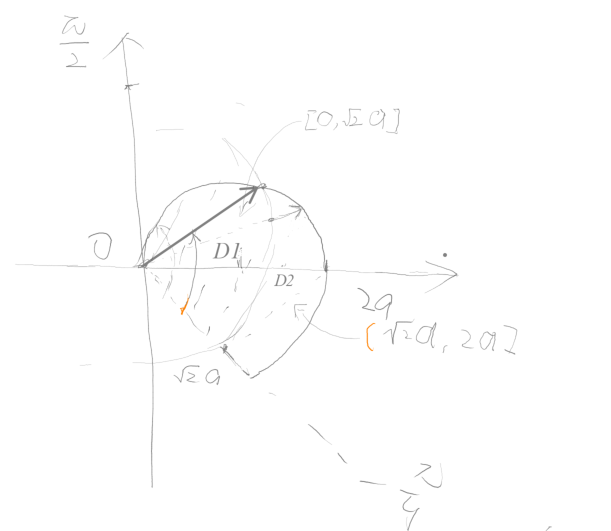 π/2
[0, √2 a]
0
D1
D2
2a
[√2 a, 2a]
√2 a
-π/4